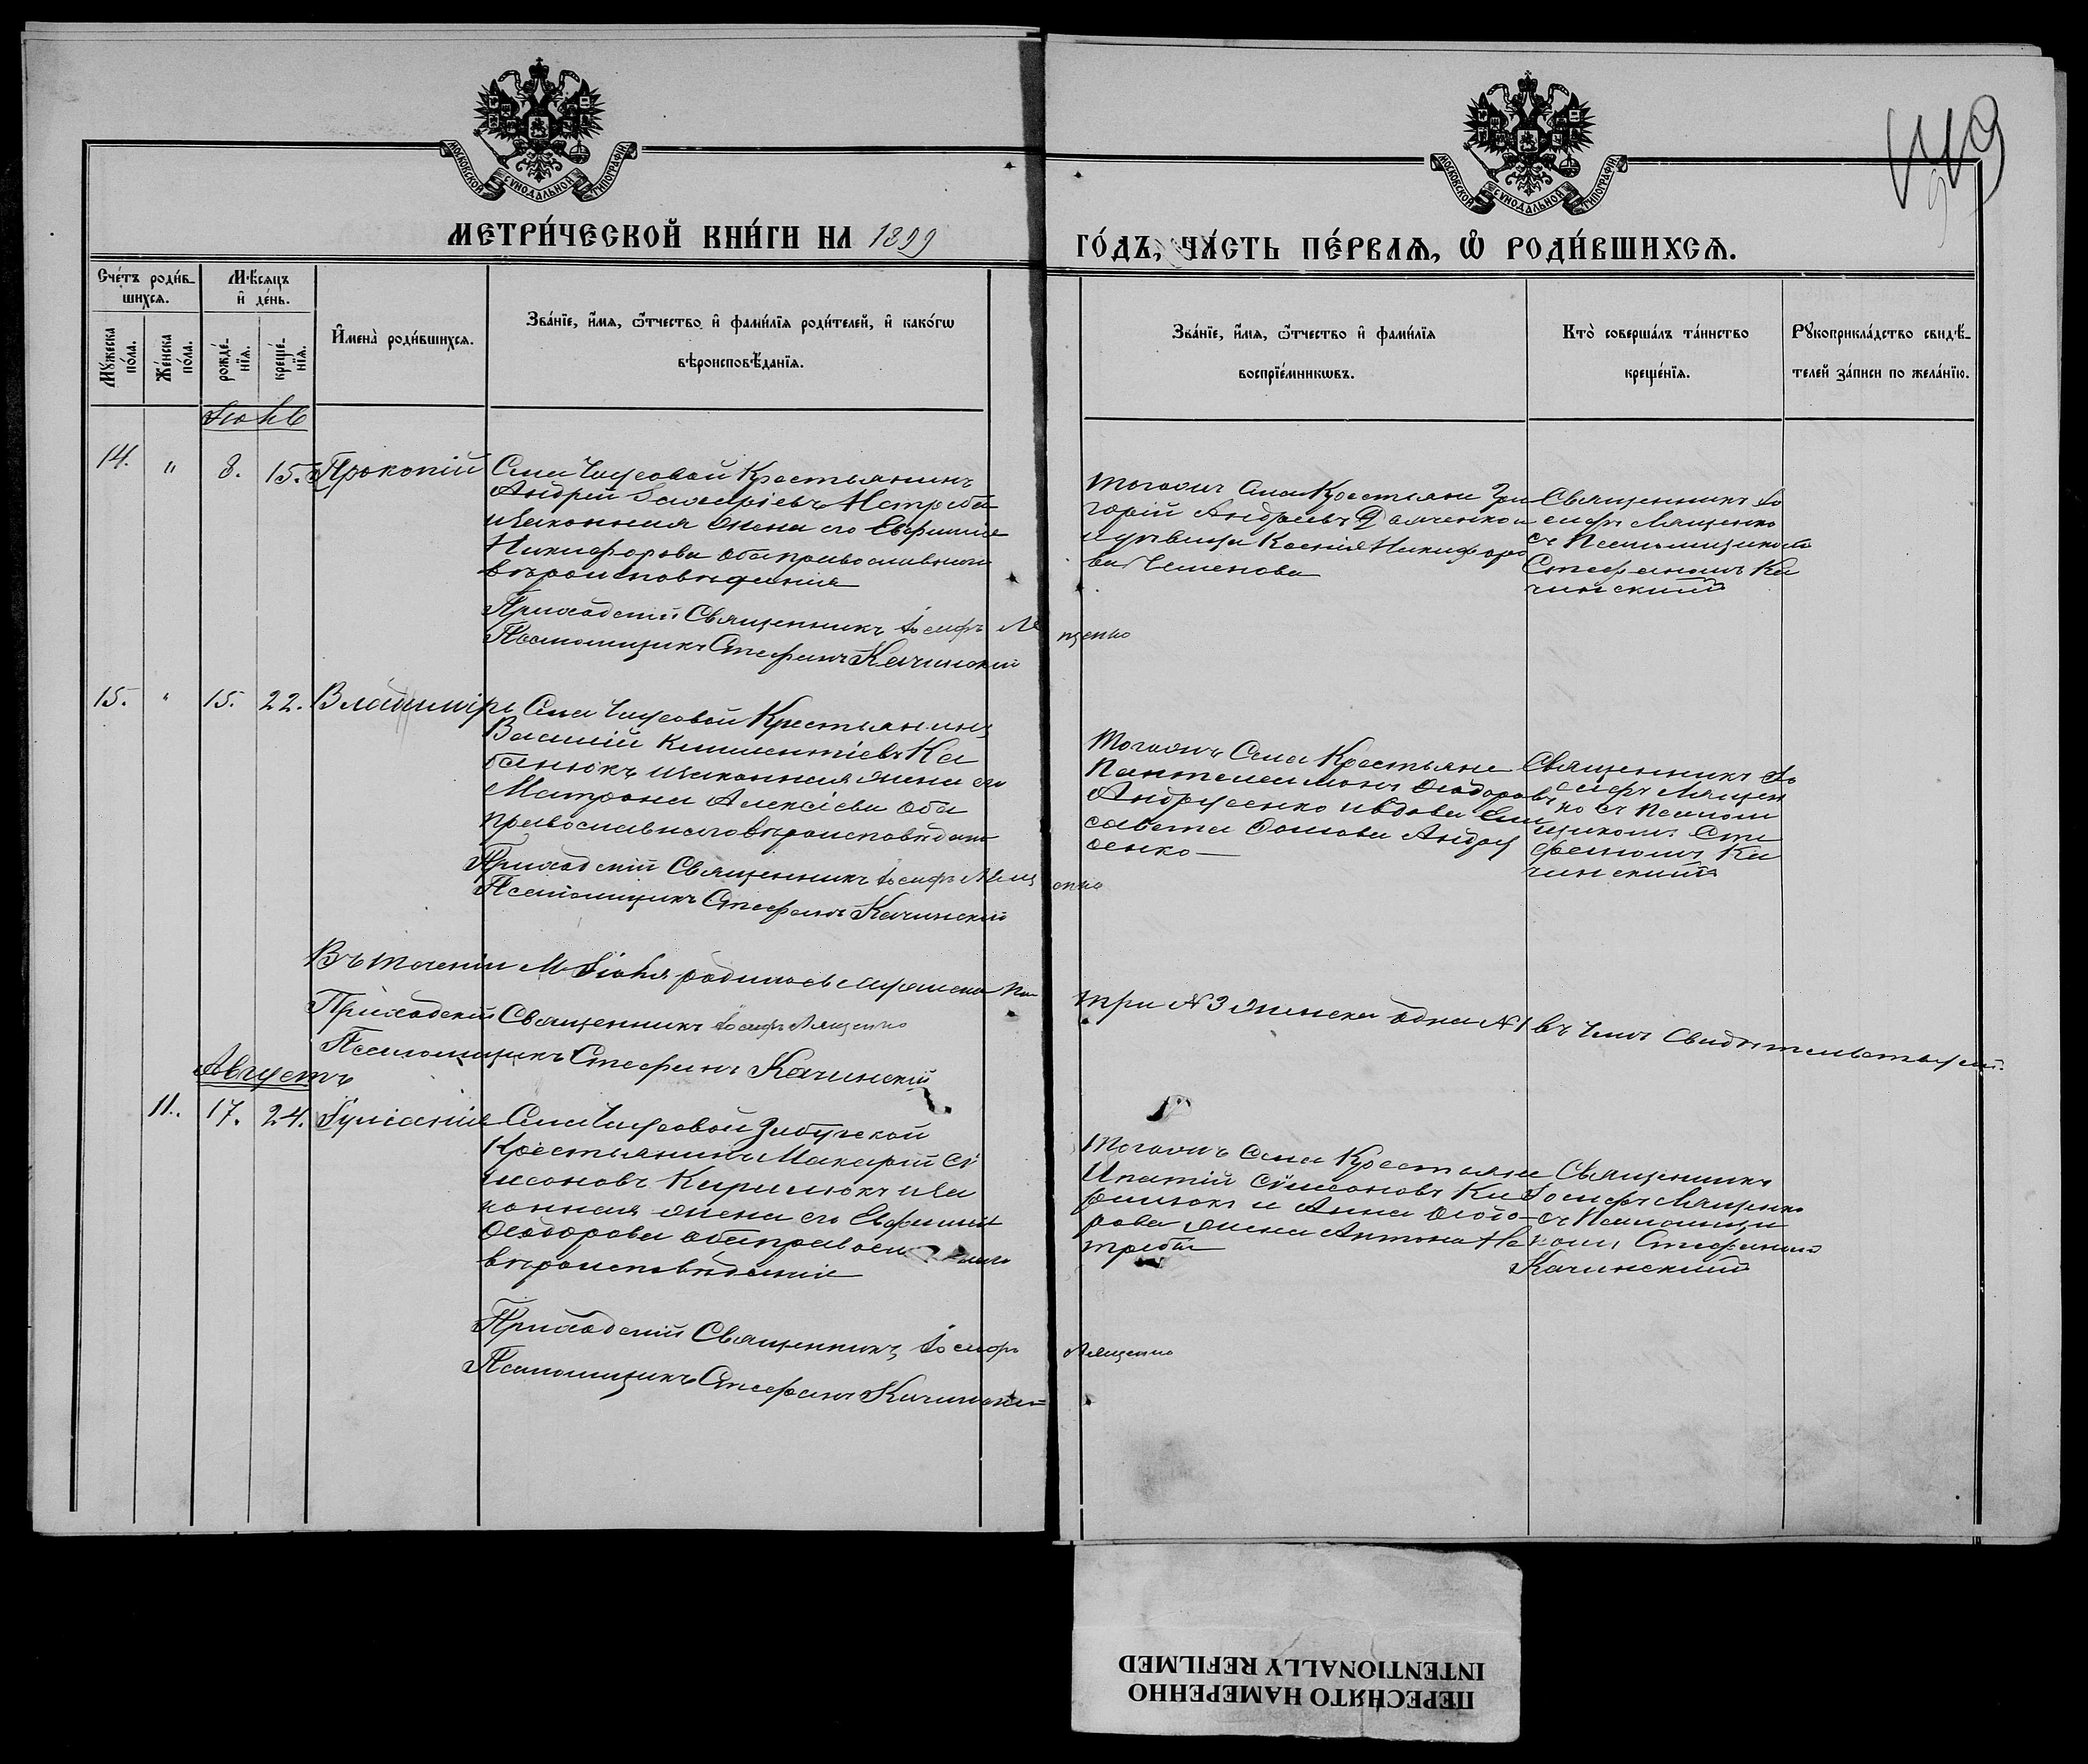 МОСКОВСКОЙ СѴНОДАЛЬНОЙ ТИПОГРАФІИ
МОСКОВСКОЙ СѴНОДАЛЬНОЙ ТИПОГРАФІИ
МЕТРИ́ЧЕСКОЙ КНИ́ГИ НА 1899
ГО́ДЪ, ЧА́СТЬ ПЕ́РВАѦ, Ѡ҆ РОДИ́ВШИХСѦ.
Сче́тъ роди́в-
шихсѧ.
Мѣ́сѧцъ
и҆ де́нь.
Мꙋ́жеска
по́ла.
Же́нска
по́ла.
рожде́-
нїѧ.
креще́-
нїѧ.
И҆мена̀ роди́вшихсѧ.
Зва́нїе, и҆́мѧ, ѻ҆́тчество и҆ фами́лїѧ роди́телей, и҆ како́гѡ
вѣроисповѣ́данїѧ.
Зва́нїе, и҆́мѧ, ѻ҆́тчество и҆ фами́лїѧ
воспрїе́мникѡвъ.
Кто̀ соверша́лъ та́инство
креще́нїѧ.
Рꙋкоприкла́дство свидѣ́-
телей за́писи по жела́нїю.
14. " 8. 15. Прокопій
Села Крестьянинъ
Андрей
и законная жена его Евфимія
Никифорова оба православнаго
вѣроисповѣданія
Приходскій Священникъ Іосифъ Лященко
Псаломщикъ Стефанъ Качинскій
Тогожъ Села Крестьяне Гри
горій Андреевъ
и Ксенія Никифоро
ва
Священникъ Іо
сифъ Лященко
съ Псаломщикомъ
Стефаномъ Ка
чинскимъ
15. " 15. 22. Владиміръ
Села Крестьянинъ
Василій Климентіевъ Ка
банюкъ и законная жена его
Матрона Алексіева оба
православнаго вѣроисповѣдан
Приходскій Священникъ Іосифъ Лященко
Псаломщикъ Стефанъ Качинскій
Тогожъ Села Крестьяне
Пантелеимонъ Ѳеодоровъ
Андрусенко и вдова Ели
савета Андру
сенко
Священникъ Іо
сифъ Лящен
ко съ Псалом
щикомъ Сте
фаномъ Ка
чинскимъ
Въ теченіи М Іюля родилось мужеска по
три №3 женска одна №1 въ чемъ Свидѣтельствуемъ.
Приходскій Священникъ Іосифъ Лященко
Псаломщикъ Стефанъ Качинскій
Августъ
11. 17. 24. Іуліанія
Села
Крестьянинъ Макарій Сѵ
меоновъ Кирилюкъ и за
конная жена его Евфимія
Ѳеодорова оба православнаго
вѣроисповѣданія
Приходскій Священникъ Іосифъ Лященко
Псаломщикъ Стефанъ Качинскій
Тогожъ Села Крестьяне
Ипатій Сѵмеоновъ Ки
рилюкъ и Анна Ѳеодо-
рова жена Антона Не
треба
Священникъ
Іосифъ Лященко
съ Псаломщи
комъ Стефаномъ
Качинскимъ
ПЕРЕСНЯТО НАМЕРЕННО
INTENTIONALLY REFILMED